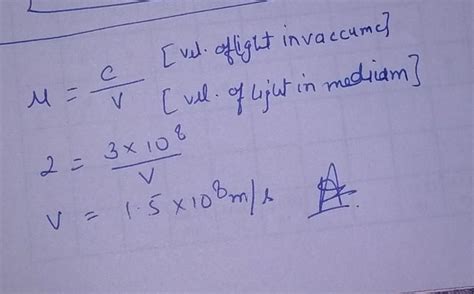 μ = c/v [vel. of light in vaccume]
[vel. of light in mediam]
2 = 3×10⁸/v
v = 1.5 ×10⁸ m/s